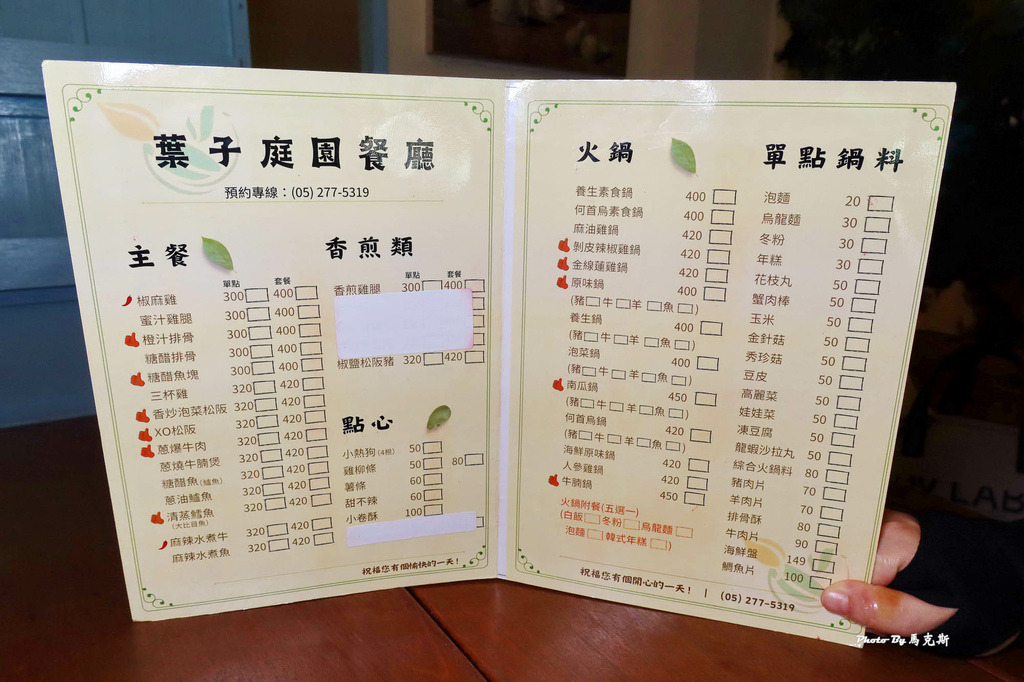 葉子庭園餐廳
預約專線：(05) 277-5319
主餐
單點 套餐
椒麻雞 300 400
蜜汁雞腿 300 400
橙汁排骨 300 400
糖醋排骨 300 400
糖醋魚塊 300 400
三杯雞 320 420
香炒泡菜松阪 320 420
XO松阪 320 420
蔥爆牛肉 320 420
蔥燒牛腩煲 320 420
糖醋魚(鱸魚) 320 420
蔥油鱸魚 320 420
清蒸鱈魚 320 420
(大比目魚)
麻辣水煮牛 320 420
麻辣水煮魚 320 420
香煎類
單點 套餐
香煎雞腿 300 400
椒鹽松阪豬 320 420
點心
小熱狗(4根) 50
雞柳條 50 80
薯條 60
甜不辣 60
小卷酥 100
祝福您有個愉快的一天！
火鍋
養生素食鍋 400
何首烏素食鍋 400
麻油雞鍋 420
剝皮辣椒雞鍋 420
金線蓮雞鍋 420
原味鍋 400
(豬 牛 羊 魚 )
養生鍋 400
(豬 牛 羊 魚 )
泡菜鍋 400
(豬 牛 羊 魚 )
南瓜鍋 450
(豬 牛 羊 魚 )
何首烏鍋 420
(豬 牛 羊 魚 )
海鮮原味鍋 420
人參雞鍋 420
牛腩鍋 450
火鍋附餐(五選一)
(白飯 冬粉 烏龍麵
泡麵 韓式年糕 )
單點鍋料
泡麵 20
烏龍麵 30
冬粉 30
年糕 30
花枝丸 50
蟹肉棒 50
玉米 50
金針菇 50
秀珍菇 50
豆皮 50
高麗菜 50
娃娃菜 50
凍豆腐 50
龍蝦沙拉丸 50
綜合火鍋料 80
豬肉片 70
羊肉片 70
排骨酥 80
牛肉片 90
海鮮盤 149
鯛魚片 100
祝福您有個開心的一天！ | (05) 277-5319
Photo By 馬克斯